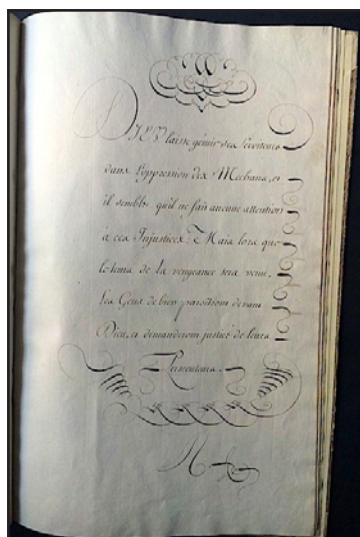 DIEU laisse gémir ses Serviteurs
dans l'oppression des Mechans, et
il semble qu'il ne fait aucune attention
à ces Injustices. Mais lors que
le tems de la vengeance sera venu,
les Gens de bien paroitront devant
Dieu, et demanderont justice de leurs
Persecuteurs.